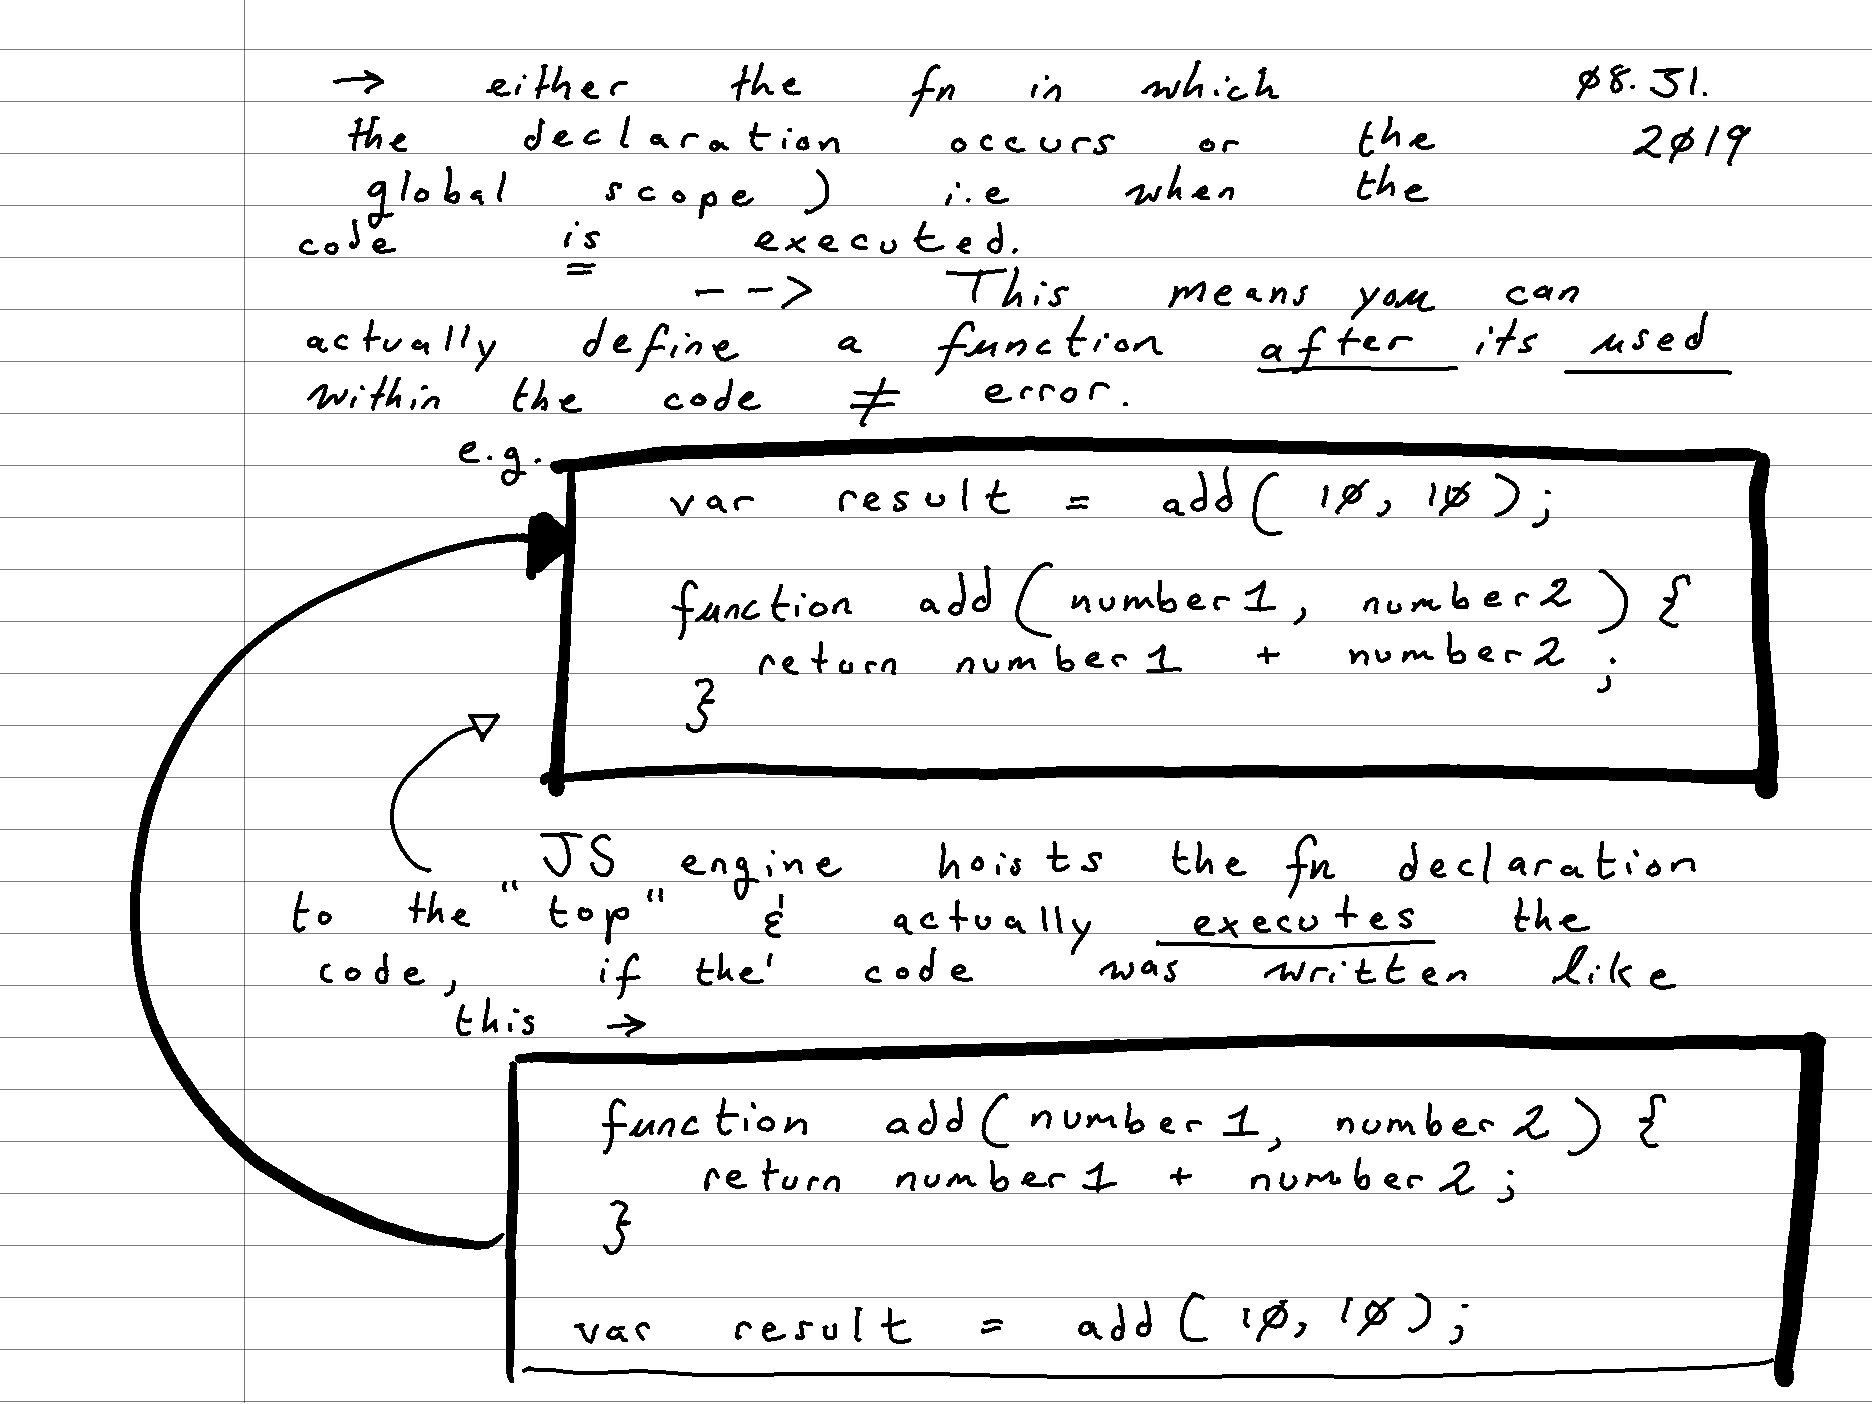 → either the fn in which 08.31.
the declaration occurs or the 2019
global scope) i.e when the
code is executed.
--> This means you can
actually define a function after its used
within the code ≠ error.
e.g.
var result = add( 10, 10 );
function add( number1, number2 ) {
return number1 + number2 ;
}
JS engine hoists the fn declaration
to the "top" & actually executes the
code, if the' code was written like
this →
function add( number1, number2 ) {
return number1 + number2 ;
}
var result = add( 10, 10 );